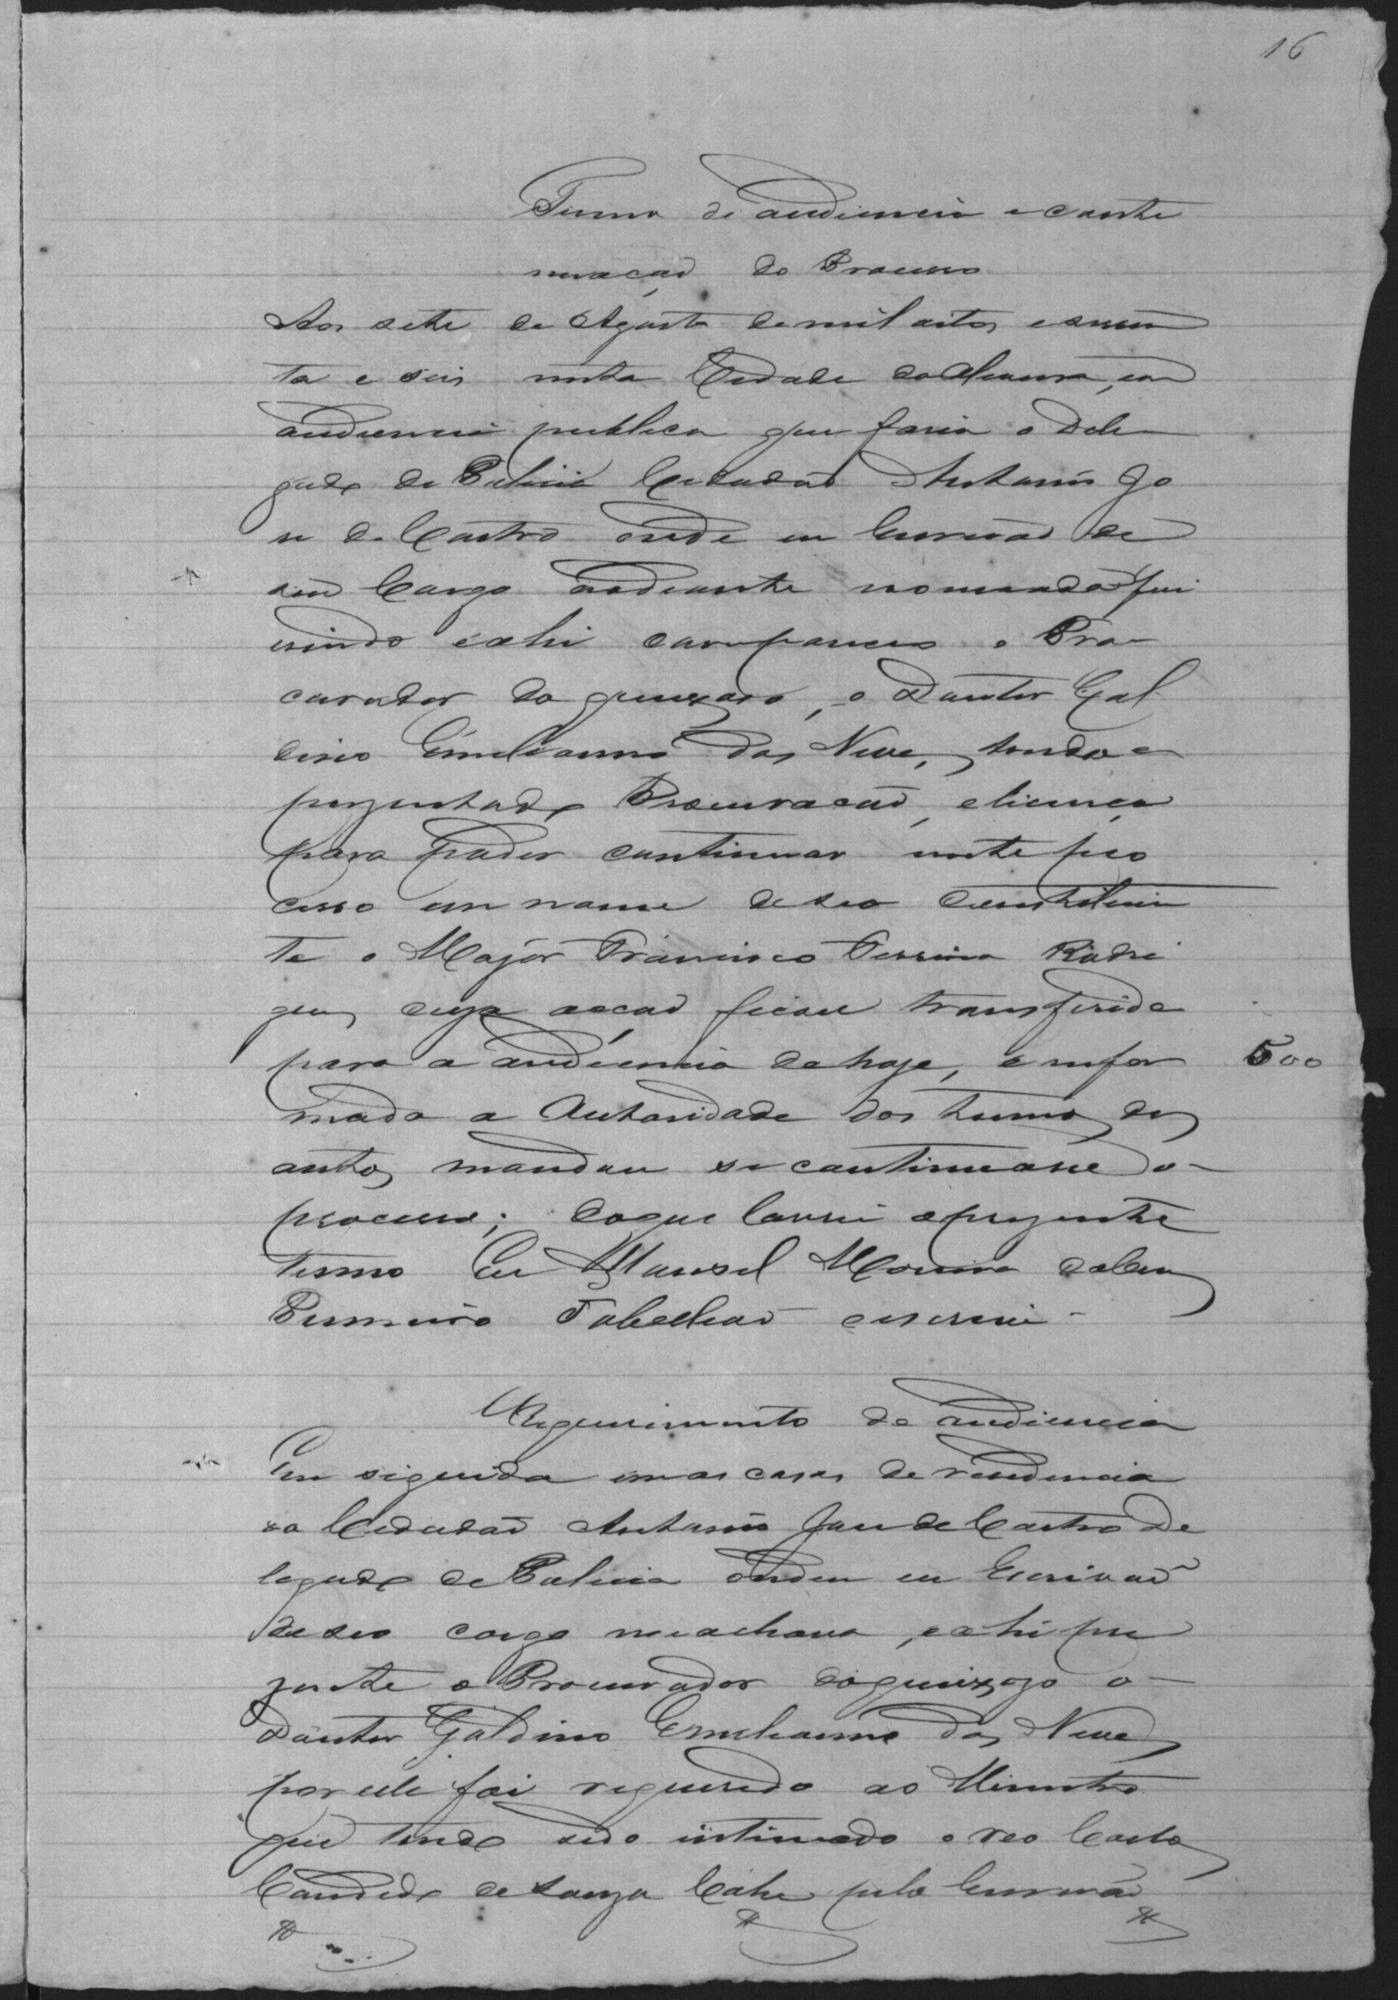 16
Termo de audiencia e conti
nuação do Processo
Aos sete de Agosto de mil oitos e sessen
ta e seis nesta Cidade
audiencia publica que fasia o Dele
gado de Policia Cidadão Antonio Jo
se de Castro onde eu Escrivão de
seu Cargo aodiante nomeado fui
vindo e ahi compareceo o Pro
curador do queixozo, o Doutor Gal
dino Emeliano das Neve, tendo a
prezentado Procuração, e licença
para poder continuar neste pro
cesso em nome de seo Constituin
te o Major Francisco Ferreira Rodri
gues cuja acção ficou transferida
para a audiencia de hoje, e enfor 500
mado a Autoridade dos termos dos
autos mandou se continuasse o
processo; do que lavrei o prezente
termo Eu Manoel Moreira
Primeiro Tabelliao escrevi
Requerimento de audiencia
Em siguida em as casas de residencia
do Cidadão Antonio Jose de Castro De
legado de Policia onde eu Escrivão
de seo cargo me achava, e ahi pre
zente o Procurador do queixozo o
Doutor Galdino Emeliano das Neves
por elle foi requerido ao Ministro
que tendo sido intimado o reo
Candido de Souza pelo Escrivão